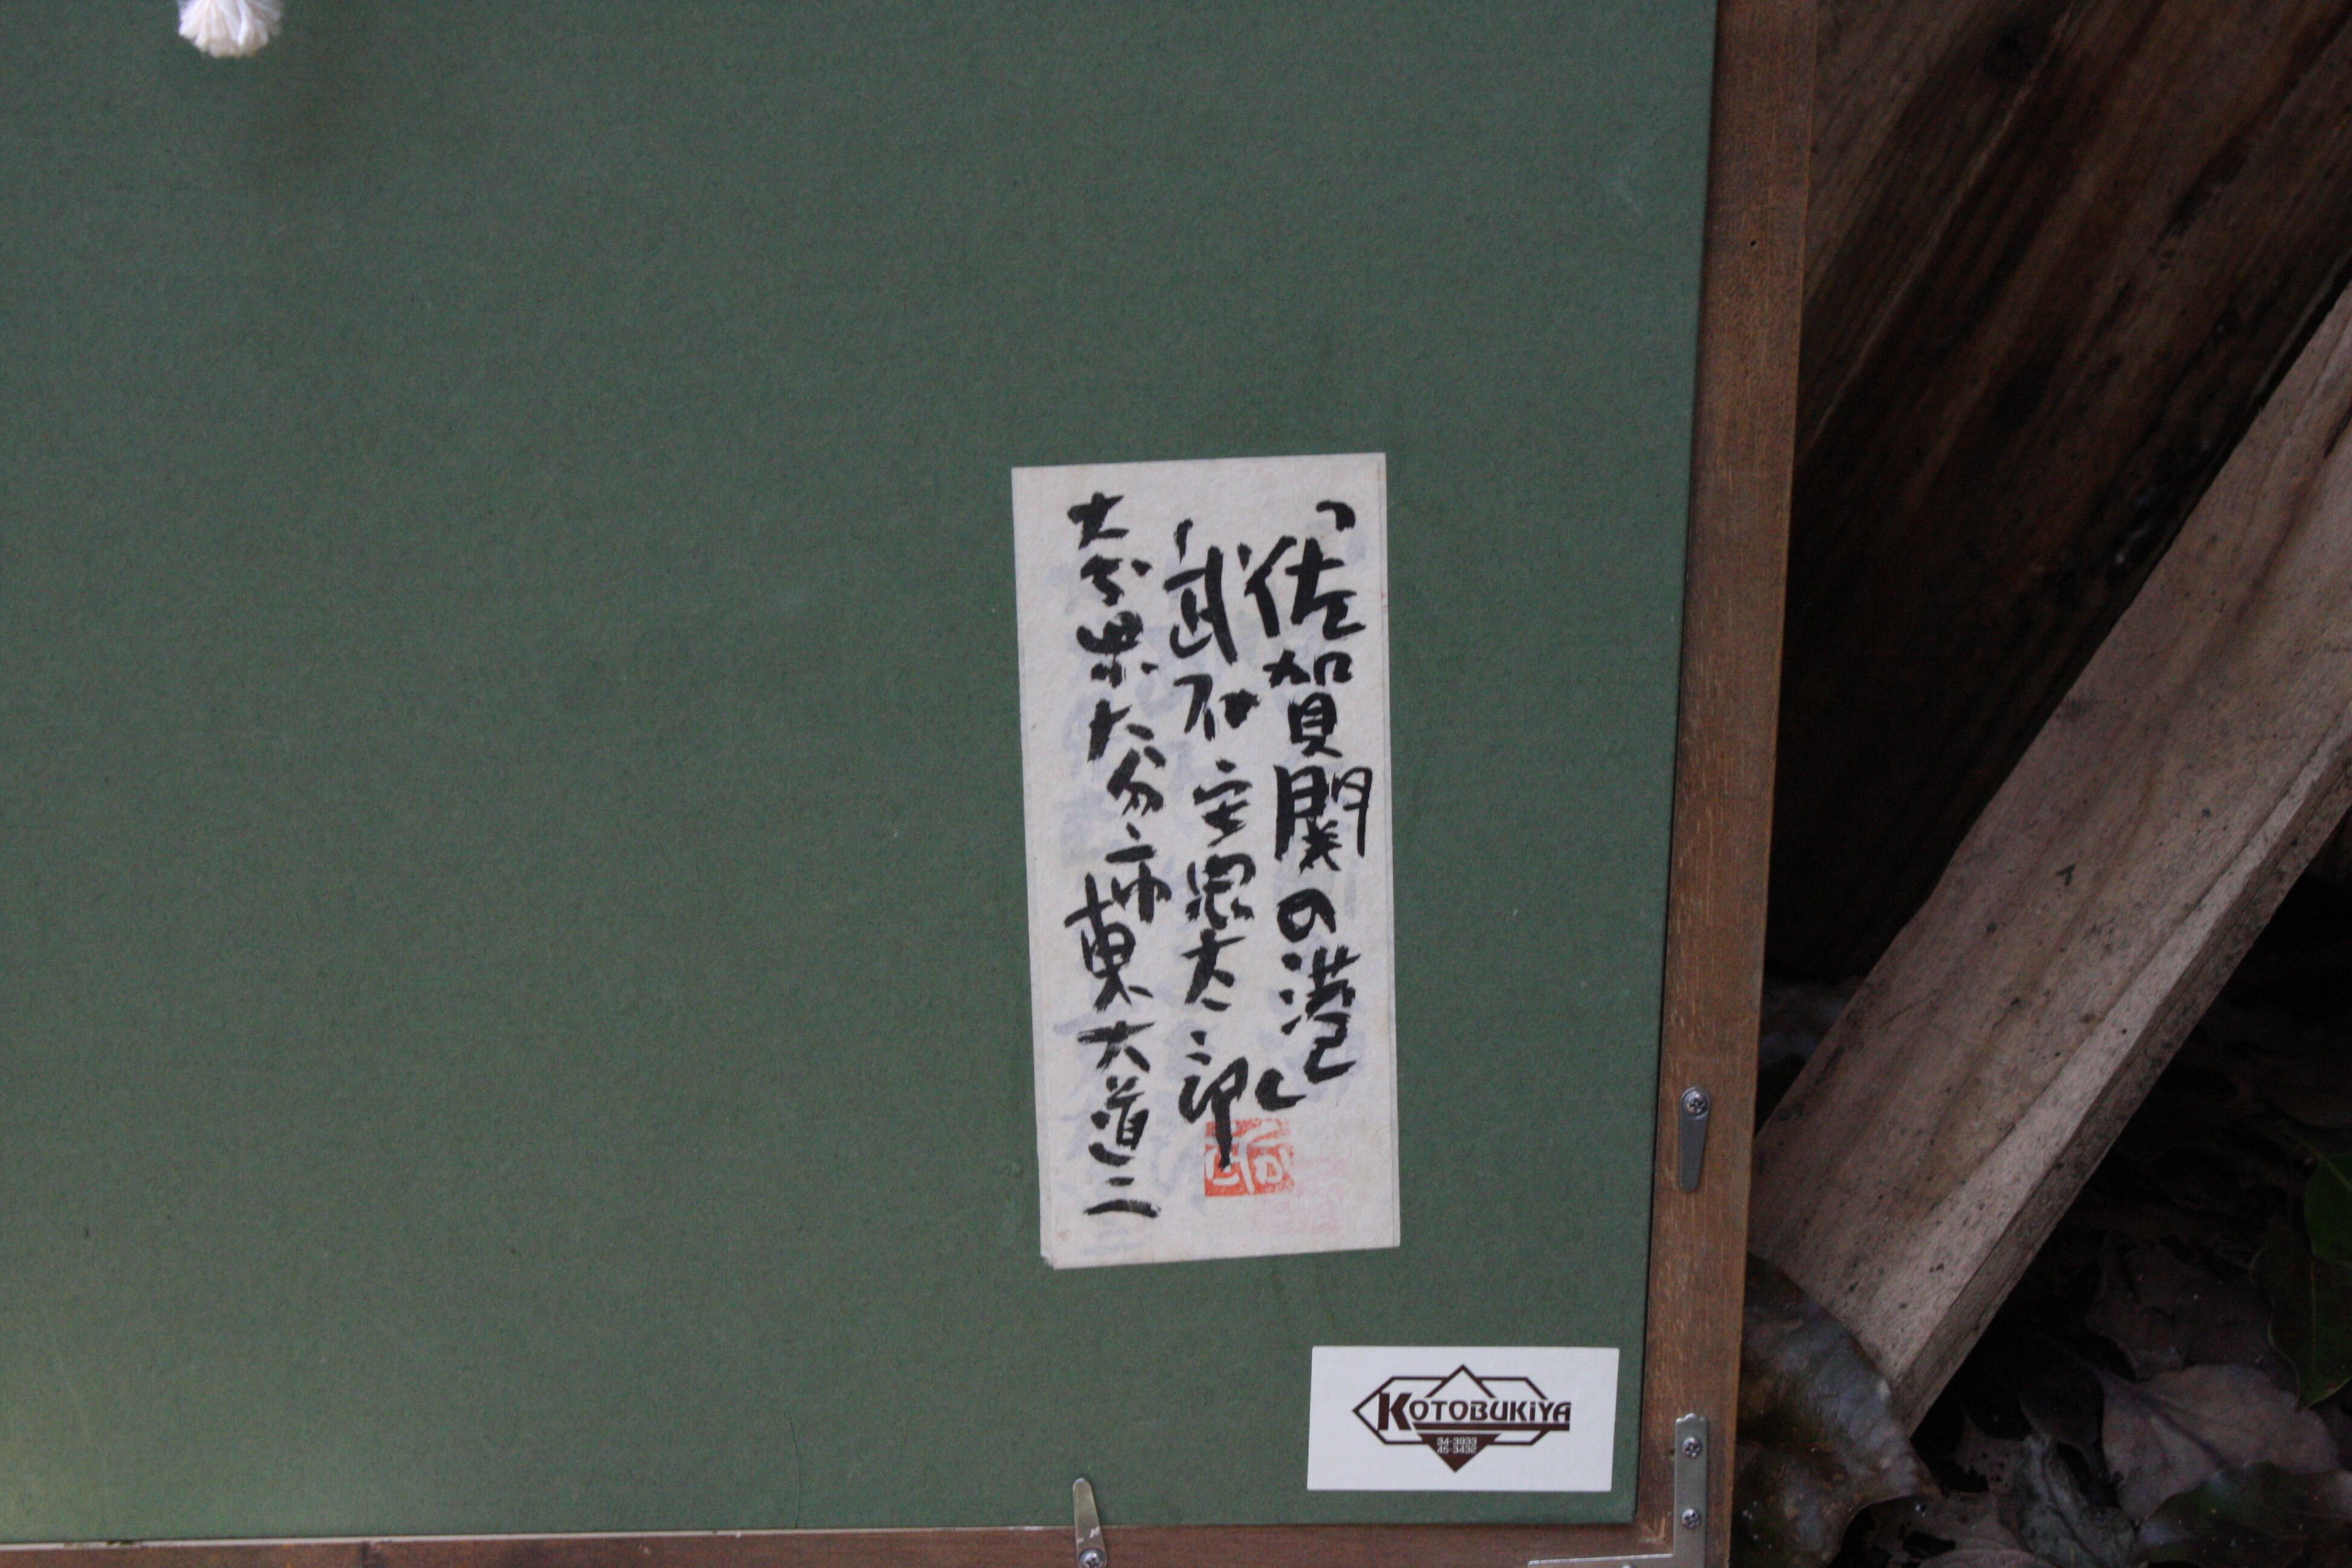 「佐賀関の港」
武石憲太郎
大分県大分市東大道二
KOTOBUKIYA
34-3933
45-3432